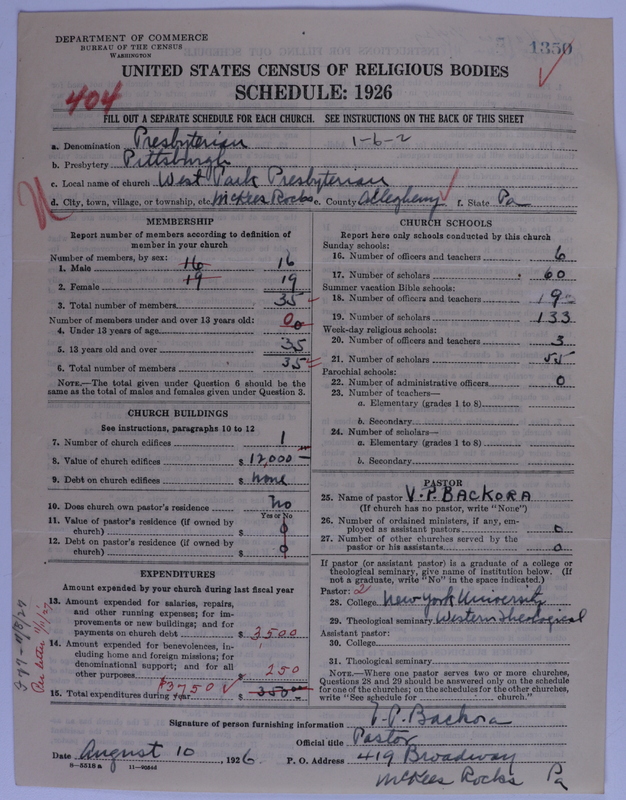 DEPARTMENT OF COMMERCE
BUREAU OF THE CENSUS
WASHINGTON
1350
UNITED STATES CENSUS OF RELIGIOUS BODIES
SCHEDULE: 1926
404
FILL OUT A SEPARATE SCHEDULE FOR EACH CHURCH. SEE INSTRUCTIONS ON THE BACK OF THIS SHEET
a. Denomination Presbyterian 1-6-2
b. Presbytery Pittsburgh
c. Local name of church West Park Presbyterian
d. City, town, village, or township, etc. McKees Rocks e. County Allegheny f. State Pa
MEMBERSHIP
Report number of members according to definition of
member in your church
Number of members, by sex:
1. Male 16 16
2. Female 19 19
3. Total number of members 35
Number of members under and over 13 years old:
4. Under 13 years of age 0 0
5. 13 years old and over 35
6. Total number of members 35
NOTE.—The total given under Question 6 should be
same as the total of males and females given under Question 3.
CHURCH BUILDINGS
See instructions, paragraphs 10 to 12
7. Number of church edifices 1
8. Value of church edifices $ 12,000
9. Debt on church edifices $ none
10. Does church own pastor's residence no
Yes or No
11. Value of pastor's residence (if owned by
church) $ 0
12. Debt on pastor's residence (if owned by
church) $ 0
EXPENDITURES
Amount expended by your church during last fiscal year
13. Amount expended for salaries, repairs,
and other running expenses; for im-
provements or new buildings; and for
payments on church debt $ 3,500
14. Amount expended for benevolences, in-
cluding home and foreign missions; for
denominational support; and for all
other purposes $ 250
15. Total expenditures during year $3750 $ 350
Per letter
CHURCH SCHOOLS
Report here only schools conducted by this church
Sunday schools:
16. Number of officers and teachers 6
17. Number of scholars 60
Summer vacation Bible schools:
18. Number of officers and teachers 19
19. Number of scholars 133
Week-day religious schools:
20. Number of officers and teachers 3
21. Number of scholars 55
Parochial schools:
22. Number of administrative officers 0
23. Number of teachers—
a. Elementary (grades 1 to 8)
b. Secondary
24. Number of scholars—
a. Elementary (grades 1 to 8)
b. Secondary
PASTOR
25. Name of pastor V. P. BACKORA
(If church has no pastor, write "None")
26. Number of ordained ministers, if any, em-
ployed as assistant pastors 0
27. Number of other churches served by the
pastor or his assistants 0
If pastor (or assistant pastor) is a graduate of a college or
theological seminary, give name of institution below. (If
not a graduate, write "No" in the space indicated.)
Pastor: 2
28. College New York University
29. Theological seminary Western Theological
Assistant pastor:
30. College
31. Theological seminary
NOTE.—Where one pastor serves two or more churches,
Questions 28 and 29 should be answered only on the schedule
for one of the churches; on the schedules for the other churches,
write "See schedule for church."
Signature of person furnishing information V. P. Backora
Official title Pastor
Date August 10, 1926. P. O. Address 419 Broadway
8-5518 a McKees Rocks Pa